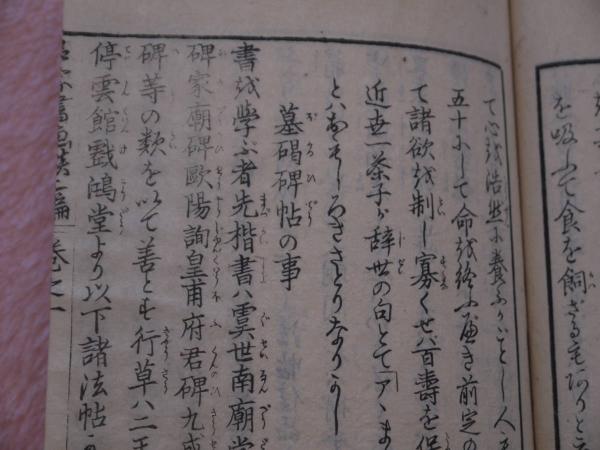 を吸ふて食を飼ざる
て心を浩然に養ふがごとし人
五十にして命を終ふべき前定の
て諸欲を制し寡くせバ百壽を保
近世一茶子が辞世の句とてアヽま
とハおもしろきさとりなりかし
墓碣碑帖の事
書を学ぶ者先楷書ハ虞世南廟堂
碑家廟碑歐陽詢皇甫府君碑九成
碑等の類を以て善とす行草ハ二王
停雲館戲鴻堂より以下諸法帖
卷之一